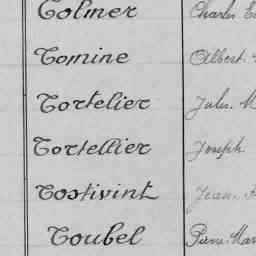 Colmer Charles E
Comine Albert
Cortelier Jules. M
Cortellier Joseph
Costivint Jean.
Coubel Pierre. Mar